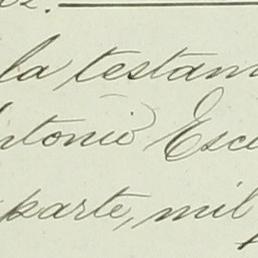 la testam
ntonio Esc
parte, mil